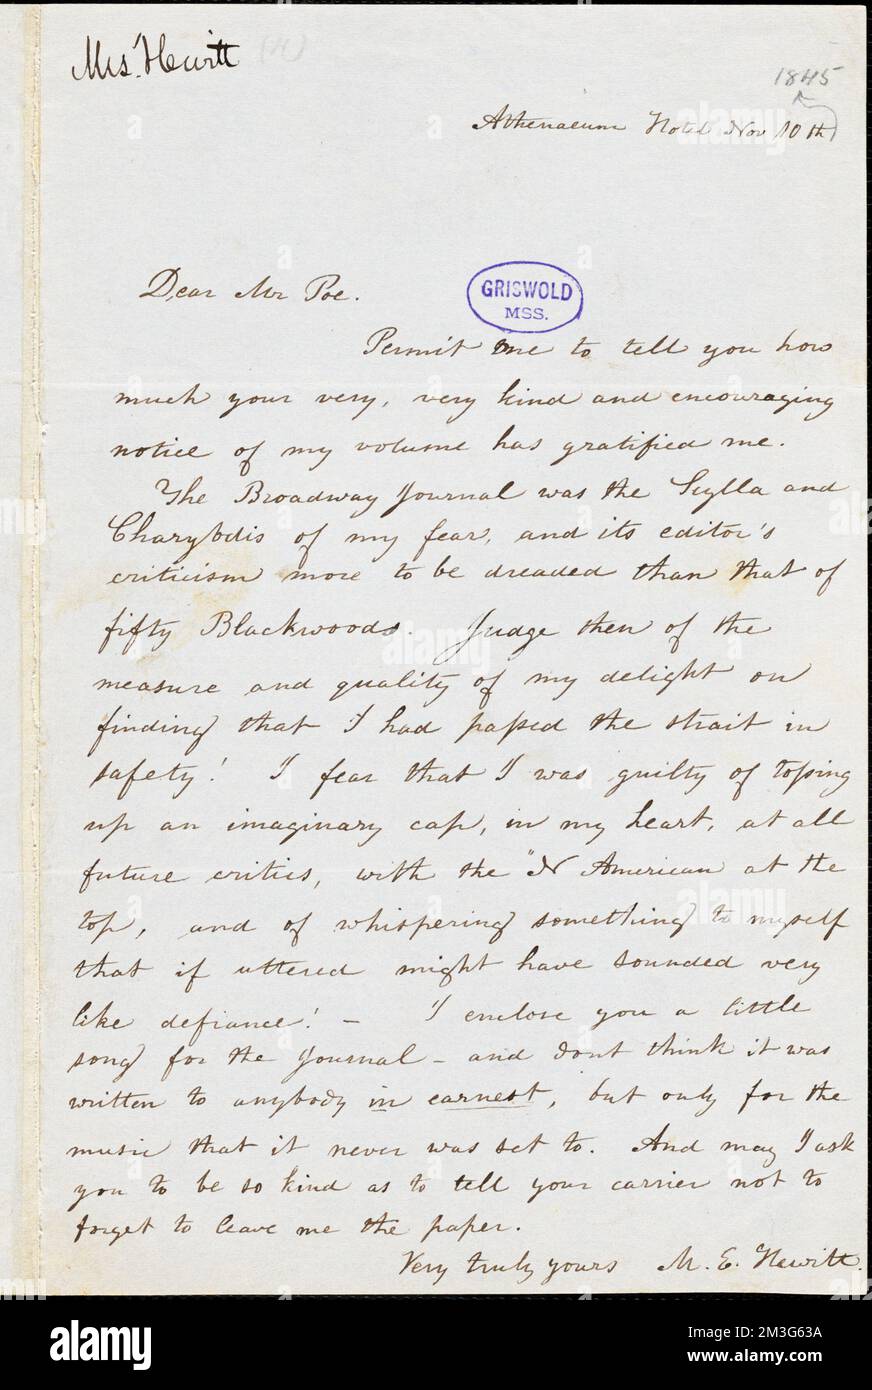 Mrs. Hewitt
1845
Athenaeum Hotel Nov 10th
Dear Mr Poe.
GRISWOLD
MSS.
Permit me to tell you how
much your very, very kind and encouraging
notice of my volume has gratified me.
The Broadway Journal was the Scylla and
Charybdis of my fear, and its editor's
criticism more to be dreaded than that of
fifty Blackwoods. Judge then of the
measure and quality of my delight on
finding that I had passed the strait in
safety! I fear that I was guilty of tossing
up an imaginary cap, in my heart, at all
future critics, with the "N American at the
top, and of whispering something to myself
that if uttered might have sounded very
like defiance! – I enclose you a little
song for the Journal – and dont think it was
written to anybody in earnest, but only for the
music that it never was set to. And may I ask
you to be so kind as to tell your carrier not to
forget to leave me the paper.
Very truly yours M. E. Hewitt.
alamy
Image ID: 2M3G63A
www.alamy.com